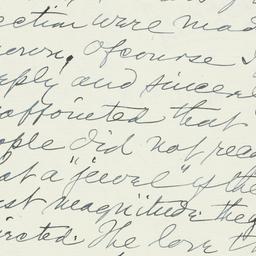 ection were mad
nown, Ofcourse I
eply and sincerel
sappointed that
ople did not reco
at a "jewel" of the
st magnitude they
irected. The love